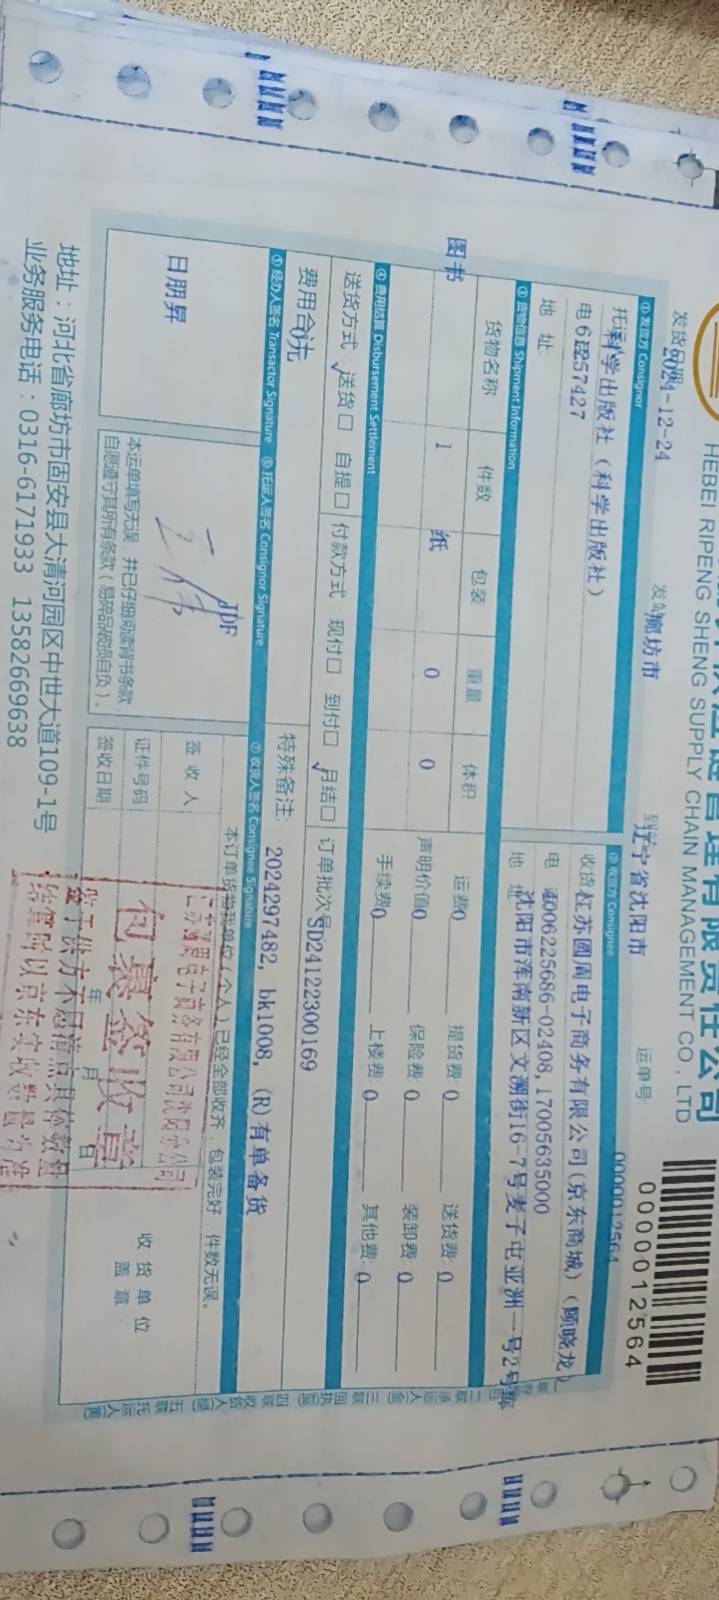 供应链管理有限责任公司
HEBEI RIPENG SHENG SUPPLY CHAIN MANAGEMENT CO., LTD
0000012564
发货日期 2024-12-24 发站 廊坊市 到 辽宁省沈阳市 运单号: 0000012564
① 发货方 Consignor
② 收货方 Consignee
托运 科学出版社（科学出版社）
收货 江苏圆周电子商务有限公司(京东商城)（顾晓龙）
电 话 57427
电 话 4006225686-02408,17005635000
地 址:
地 址 沈阳市浑南新区文溯街16-7号麦子屯亚洲一号2号库
③ 货物信息 Shipment Information
货物名称 件数 包装 重量 体积
图书 1 纸 0 0
运费 0 提货费: 0 送货费: 0
声明价值 0 保险费: 0 装卸费: 0
手续费 0 上楼费: 0 其他费: 0
④ 费用结算 Disbursement Settlement
送货方式: 送货□ 自提□ 付款方式: 现付□ 到付□ 月结□ 订单批次号 SD24122300169
费用合 0元
特殊备注: 2024297482, bk1008, (R)有单备货
⑤ 经办人签名 Transactor Signature ⑥ 托运人签名 Consignor Signature ⑦ 收货人签名 Consignee Signature
日朋昇
JDF
本运单填写无误，并已仔细阅读背书条款，
自愿遵守其所有条款（易碎品破损自负）。
本订单货物我单位(个人)已经全部收齐，包装完好，件数无误。
签收人
证件号码
签收日期 年 月 日
收货单位
盖章
电子商务有限公司沈阳分公司
包裹签收章
鉴于供方不愿清点具体数量
结算时以京东实收数量为准
地址：河北省廊坊市固安县大清河园区中世大道109-1号
业务服务电话：0316-6171933 13582669638